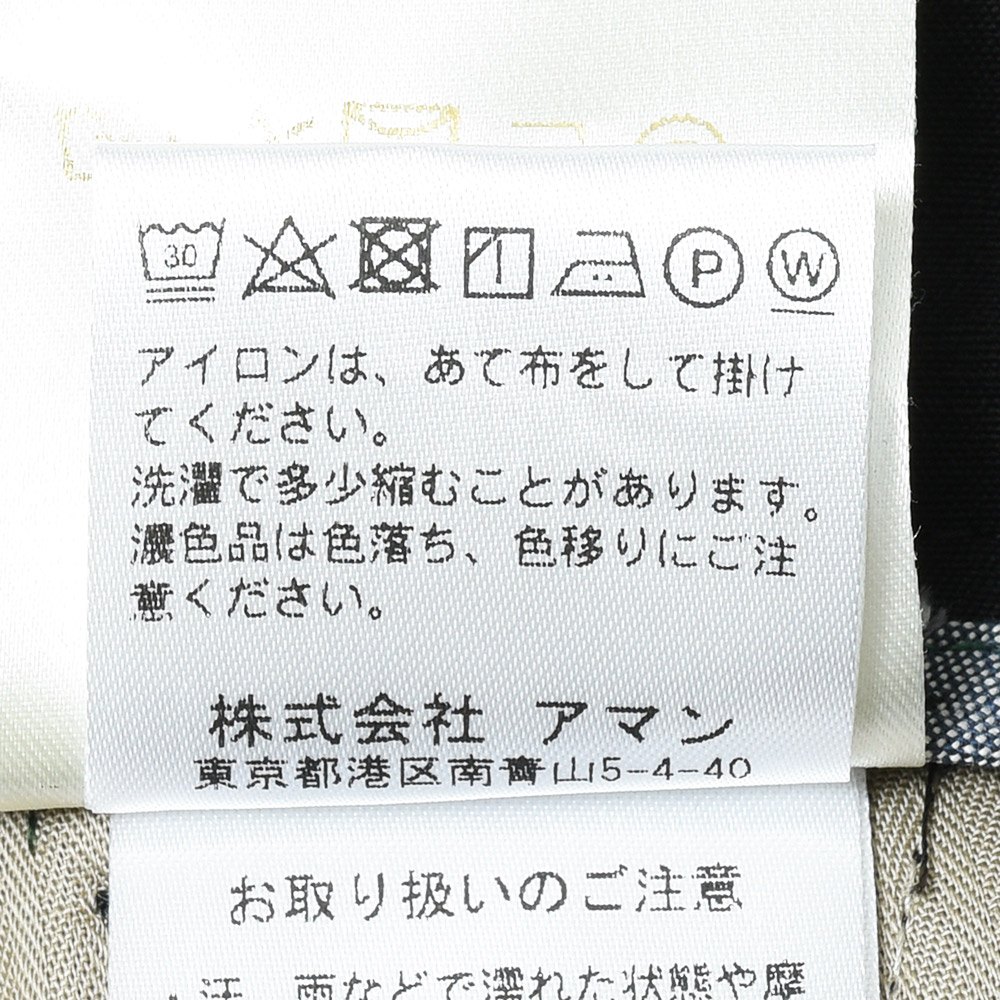 30
P
W
アイロンは、あて布をして掛け
てください。
洗濯で多少縮むことがあります。
濃色品は色落ち、色移りにご注
意ください。
株式会社 アマン
東京都港区南青山5-4-40
お取り扱いのご注意
・汗、雨などで濡れた状態や摩